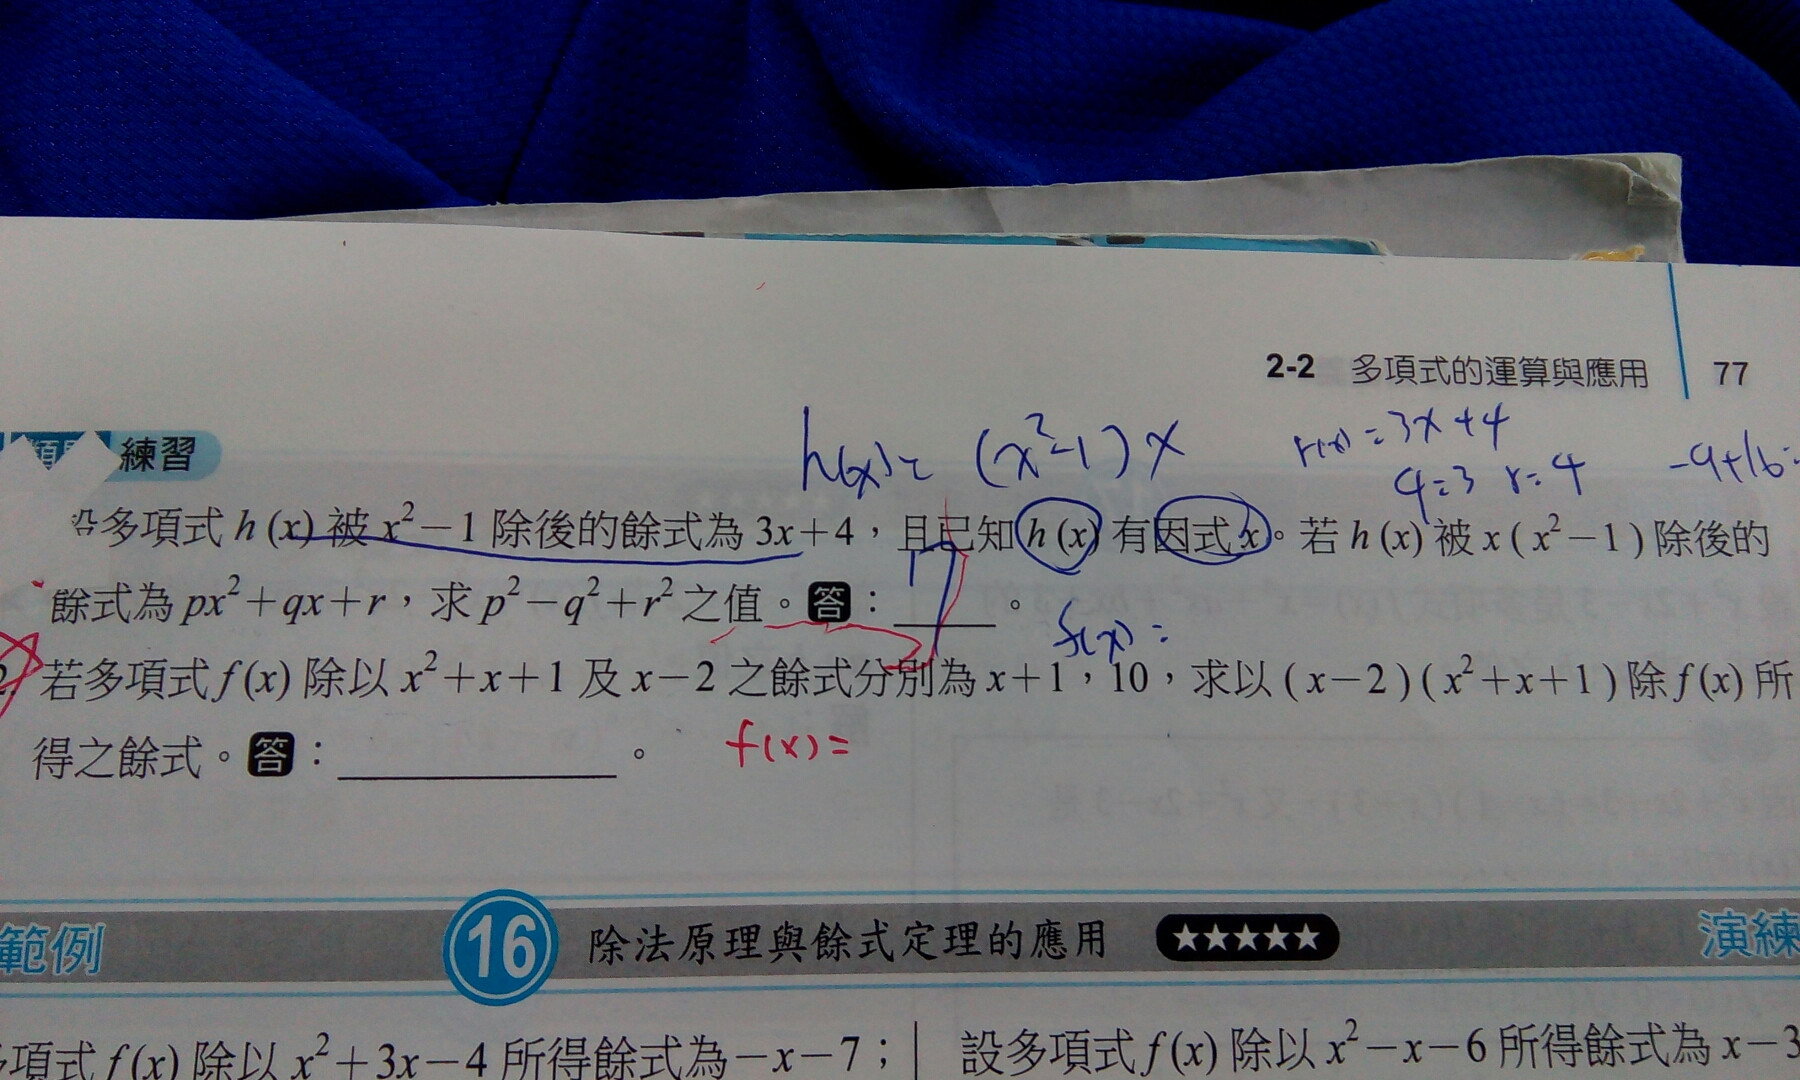 2-2 多項式的運算與應用 77
練習
h(x)= (x²-1)x
r(x)=3x+4
q=3 r=4
-9+16=
設多項式 h(x) 被 x²-1 除後的餘式為 3x+4,且已知 h(x) 有因式 x。若 h(x) 被 x(x²-1) 除後的
餘式為 px²+qx+r,求 p²-q²+r² 之值。答: 。
f(x)=
2. 若多項式 f(x) 除以 x²+x+1 及 x-2 之餘式分別為 x+1,10,求以 (x-2)(x²+x+1) 除 f(x) 所
得之餘式。答: 。
f(x)=
範例 16 除法原理與餘式定理的應用 ★★★★★ 演練
多項式 f(x) 除以 x²+3x-4 所得餘式為 -x-7;
設多項式 f(x) 除以 x²-x-6 所得餘式為 x-3